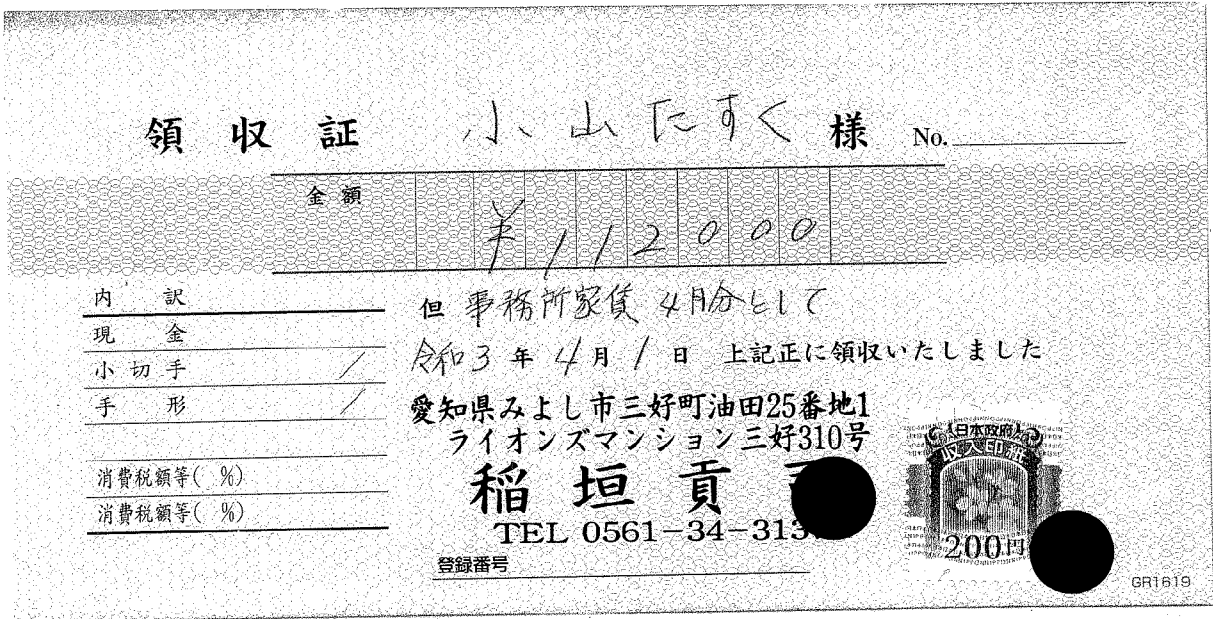 領収証 小山たすく 様 No.
金額 ¥112000
内訳
現金
小切手 /
手形 /
消費税額等( %)
消費税額等( %)
但 事務所家賃 4月分として
令和3年4月1日 上記正に領収いたしました
愛知県みよし市三好町油田25番地1
ライオンズマンション三好310号
稲垣貢
TEL 0561-34-313
登録番号
日本政府
収入印紙
200円
GR1619